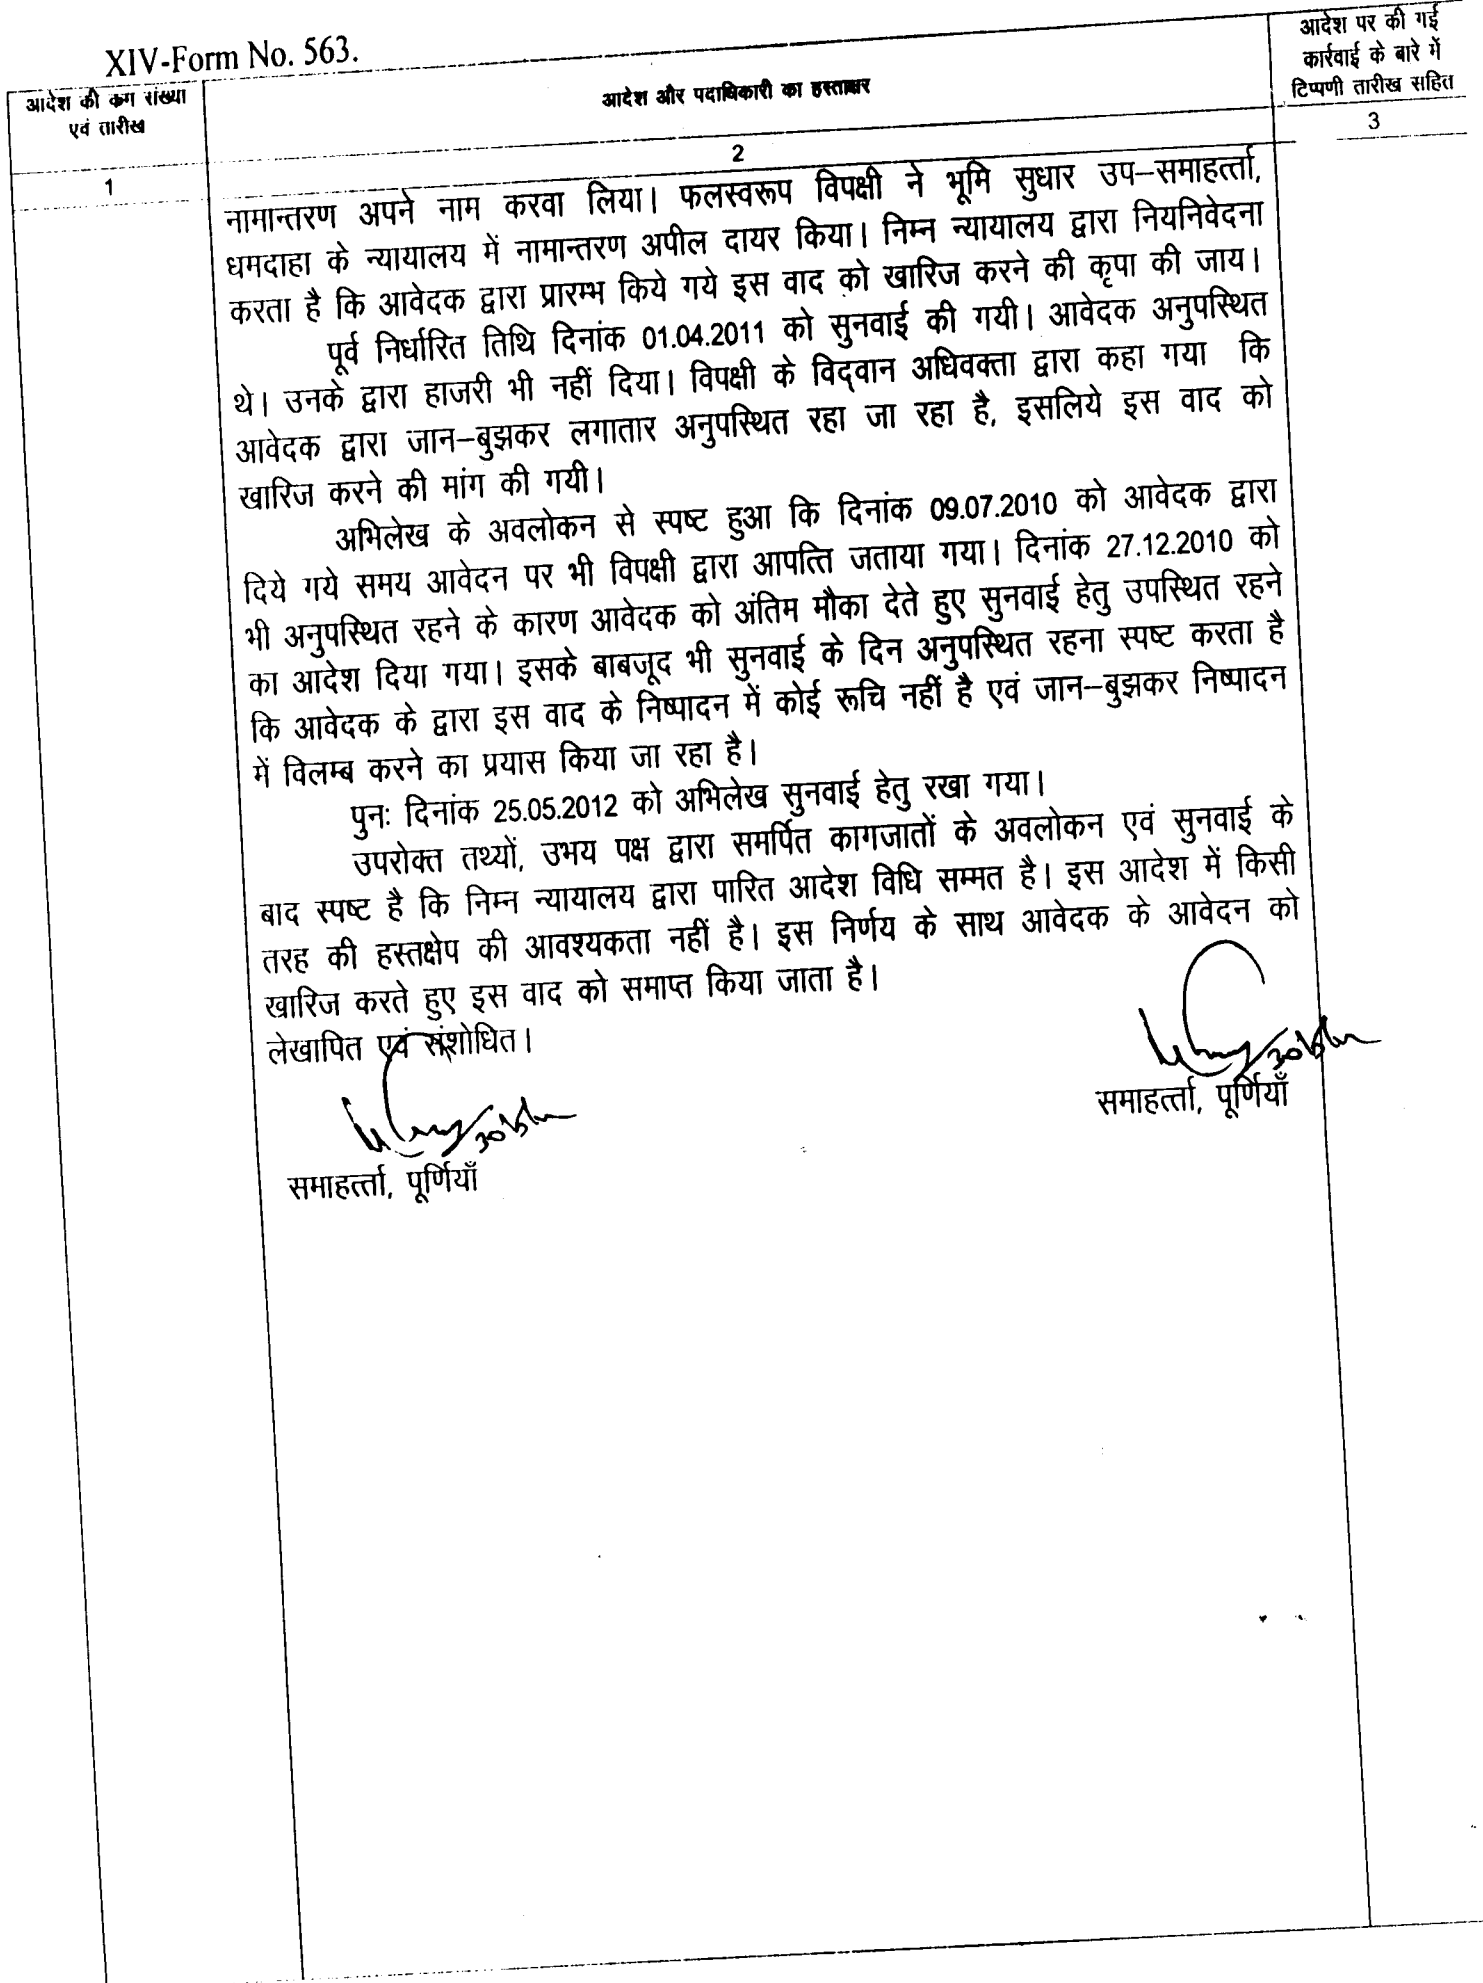 XIV-Form No. 563.
आदेश की क्रम संख्या
एवं तारीख
आदेश और पदाधिकारी का हस्ताक्षर
आदेश पर की गई
कार्रवाई के बारे में
टिप्पणी तारीख सहित
1
2
3
नामान्तरण अपने नाम करवा लिया। फलस्वरूप विपक्षी ने भूमि सुधार उप–समाहर्त्ता,
धमदाहा के न्यायालय में नामान्तरण अपील दायर किया। निम्न न्यायालय द्वारा नियनिवेदना
करता है कि आवेदक द्वारा प्रारम्भ किये गये इस वाद को खारिज करने की कृपा की जाय।
पूर्व निर्धारित तिथि दिनांक 01.04.2011 को सुनवाई की गयी। आवेदक अनुपस्थित
थे। उनके द्वारा हाजरी भी नहीं दिया। विपक्षी के विद्वान अधिवक्ता द्वारा कहा गया कि
आवेदक द्वारा जान–बुझकर लगातार अनुपस्थित रहा जा रहा है, इसलिये इस वाद को
खारिज करने की मांग की गयी।
अभिलेख के अवलोकन से स्पष्ट हुआ कि दिनांक 09.07.2010 को आवेदक द्वारा
दिये गये समय आवेदन पर भी विपक्षी द्वारा आपत्ति जताया गया। दिनांक 27.12.2010 को
भी अनुपस्थित रहने के कारण आवेदक को अंतिम मौका देते हुए सुनवाई हेतु उपस्थित रहने
का आदेश दिया गया। इसके बाबजूद भी सुनवाई के दिन अनुपस्थित रहना स्पष्ट करता है
कि आवेदक के द्वारा इस वाद के निष्पादन में कोई रूचि नहीं है एवं जान–बुझकर निष्पादन
में विलम्ब करने का प्रयास किया जा रहा है।
पुनः दिनांक 25.05.2012 को अभिलेख सुनवाई हेतु रखा गया।
उपरोक्त तथ्यों, उभय पक्ष द्वारा समर्पित कागजातों के अवलोकन एवं सुनवाई के
बाद स्पष्ट है कि निम्न न्यायालय द्वारा पारित आदेश विधि सम्मत है। इस आदेश में किसी
तरह की हस्तक्षेप की आवश्यकता नहीं है। इस निर्णय के साथ आवेदक के आवेदन को
खारिज करते हुए इस वाद को समाप्त किया जाता है।
लेखापित एवं संशोधित।
समाहर्त्ता, पूर्णियाँ
समाहर्त्ता, पूर्णियाँ